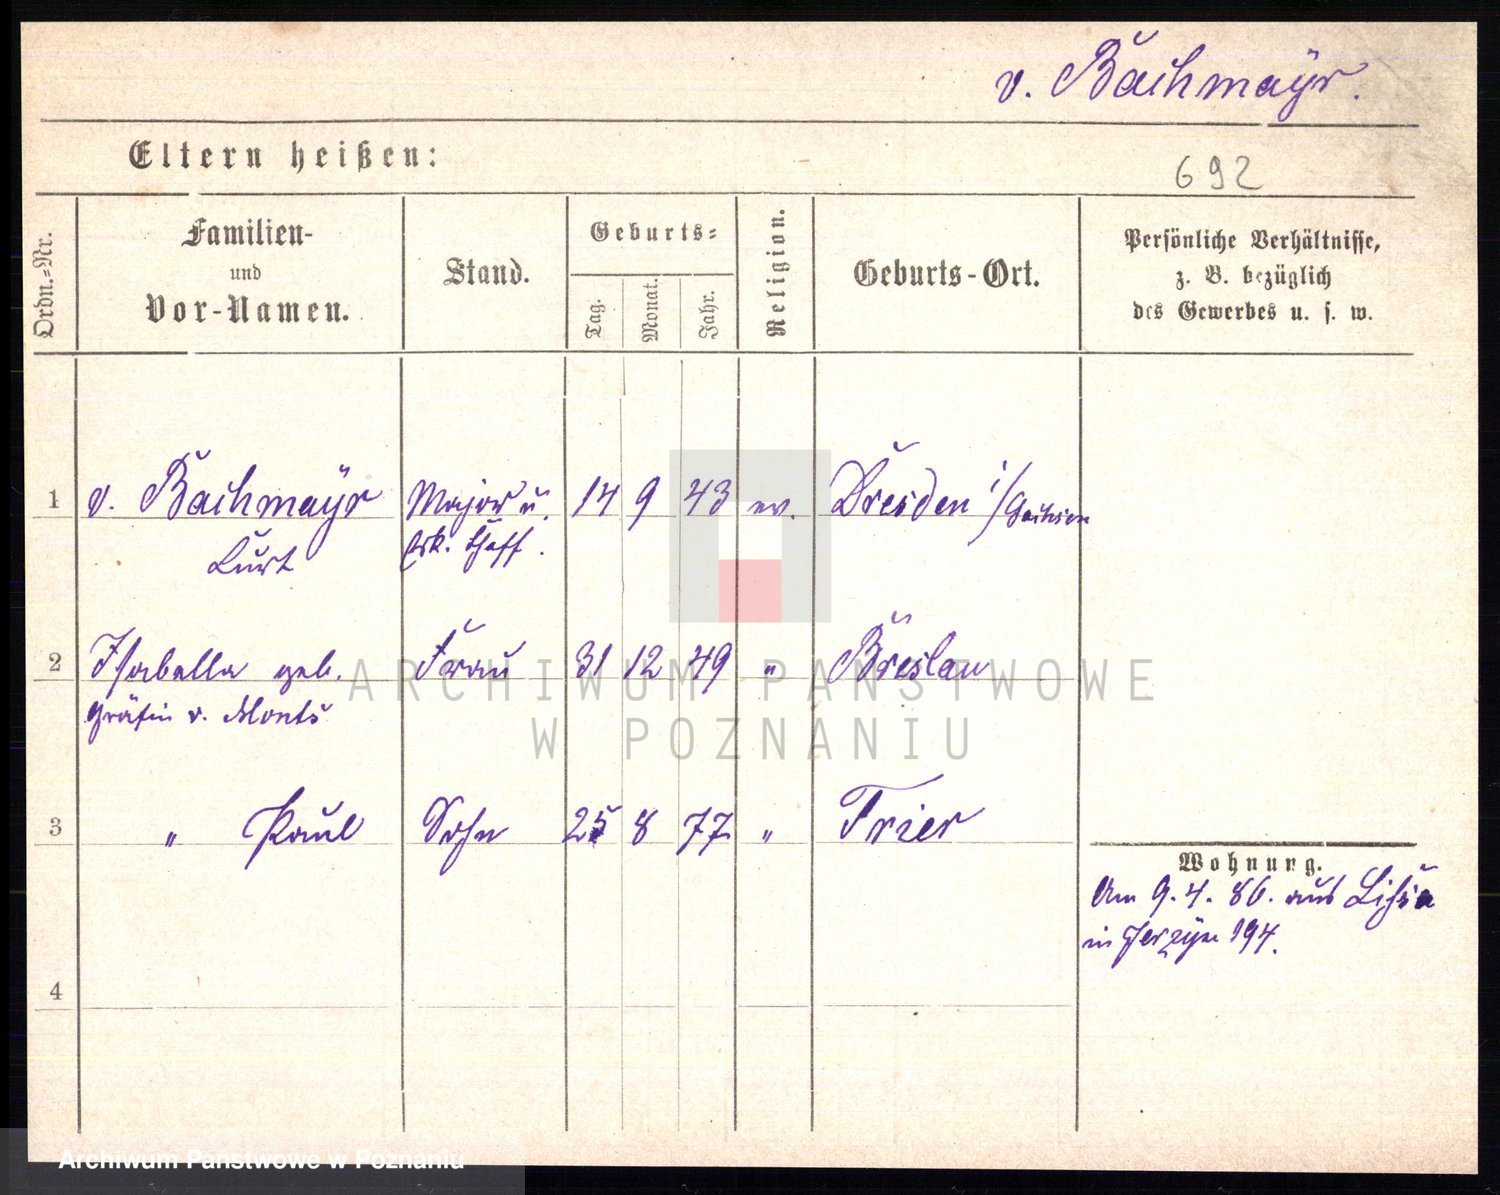 v. Bachmayr.
Eltern heißen:
692
Ordn.=Nr.
Familien-
und
Vor-Namen.
Stand.
Geburts=
Tag.
Monat.
Jahr.
Religion.
Geburts-Ort.
Persönliche Verhältnisse,
z. B. bezüglich
des Gewerbes u. s. w.
1 v. Bachmayr Major u. 14 9 43 ev. Dresden i/Sachsen
Curt Esk. Cheff.
2 Isabella geb. Frau 31 12 49 " Breslau
Gräfin v. Monts
3 " Paul Sohn 25 8 77 " Trier
Wohnung.
Am 9.4.86. aus Lissa
in Jerzyce 194.
4
ARCHIWUM PAŃSTWOWE
W POZNANIU
Archiwum Państwowe w Poznaniu